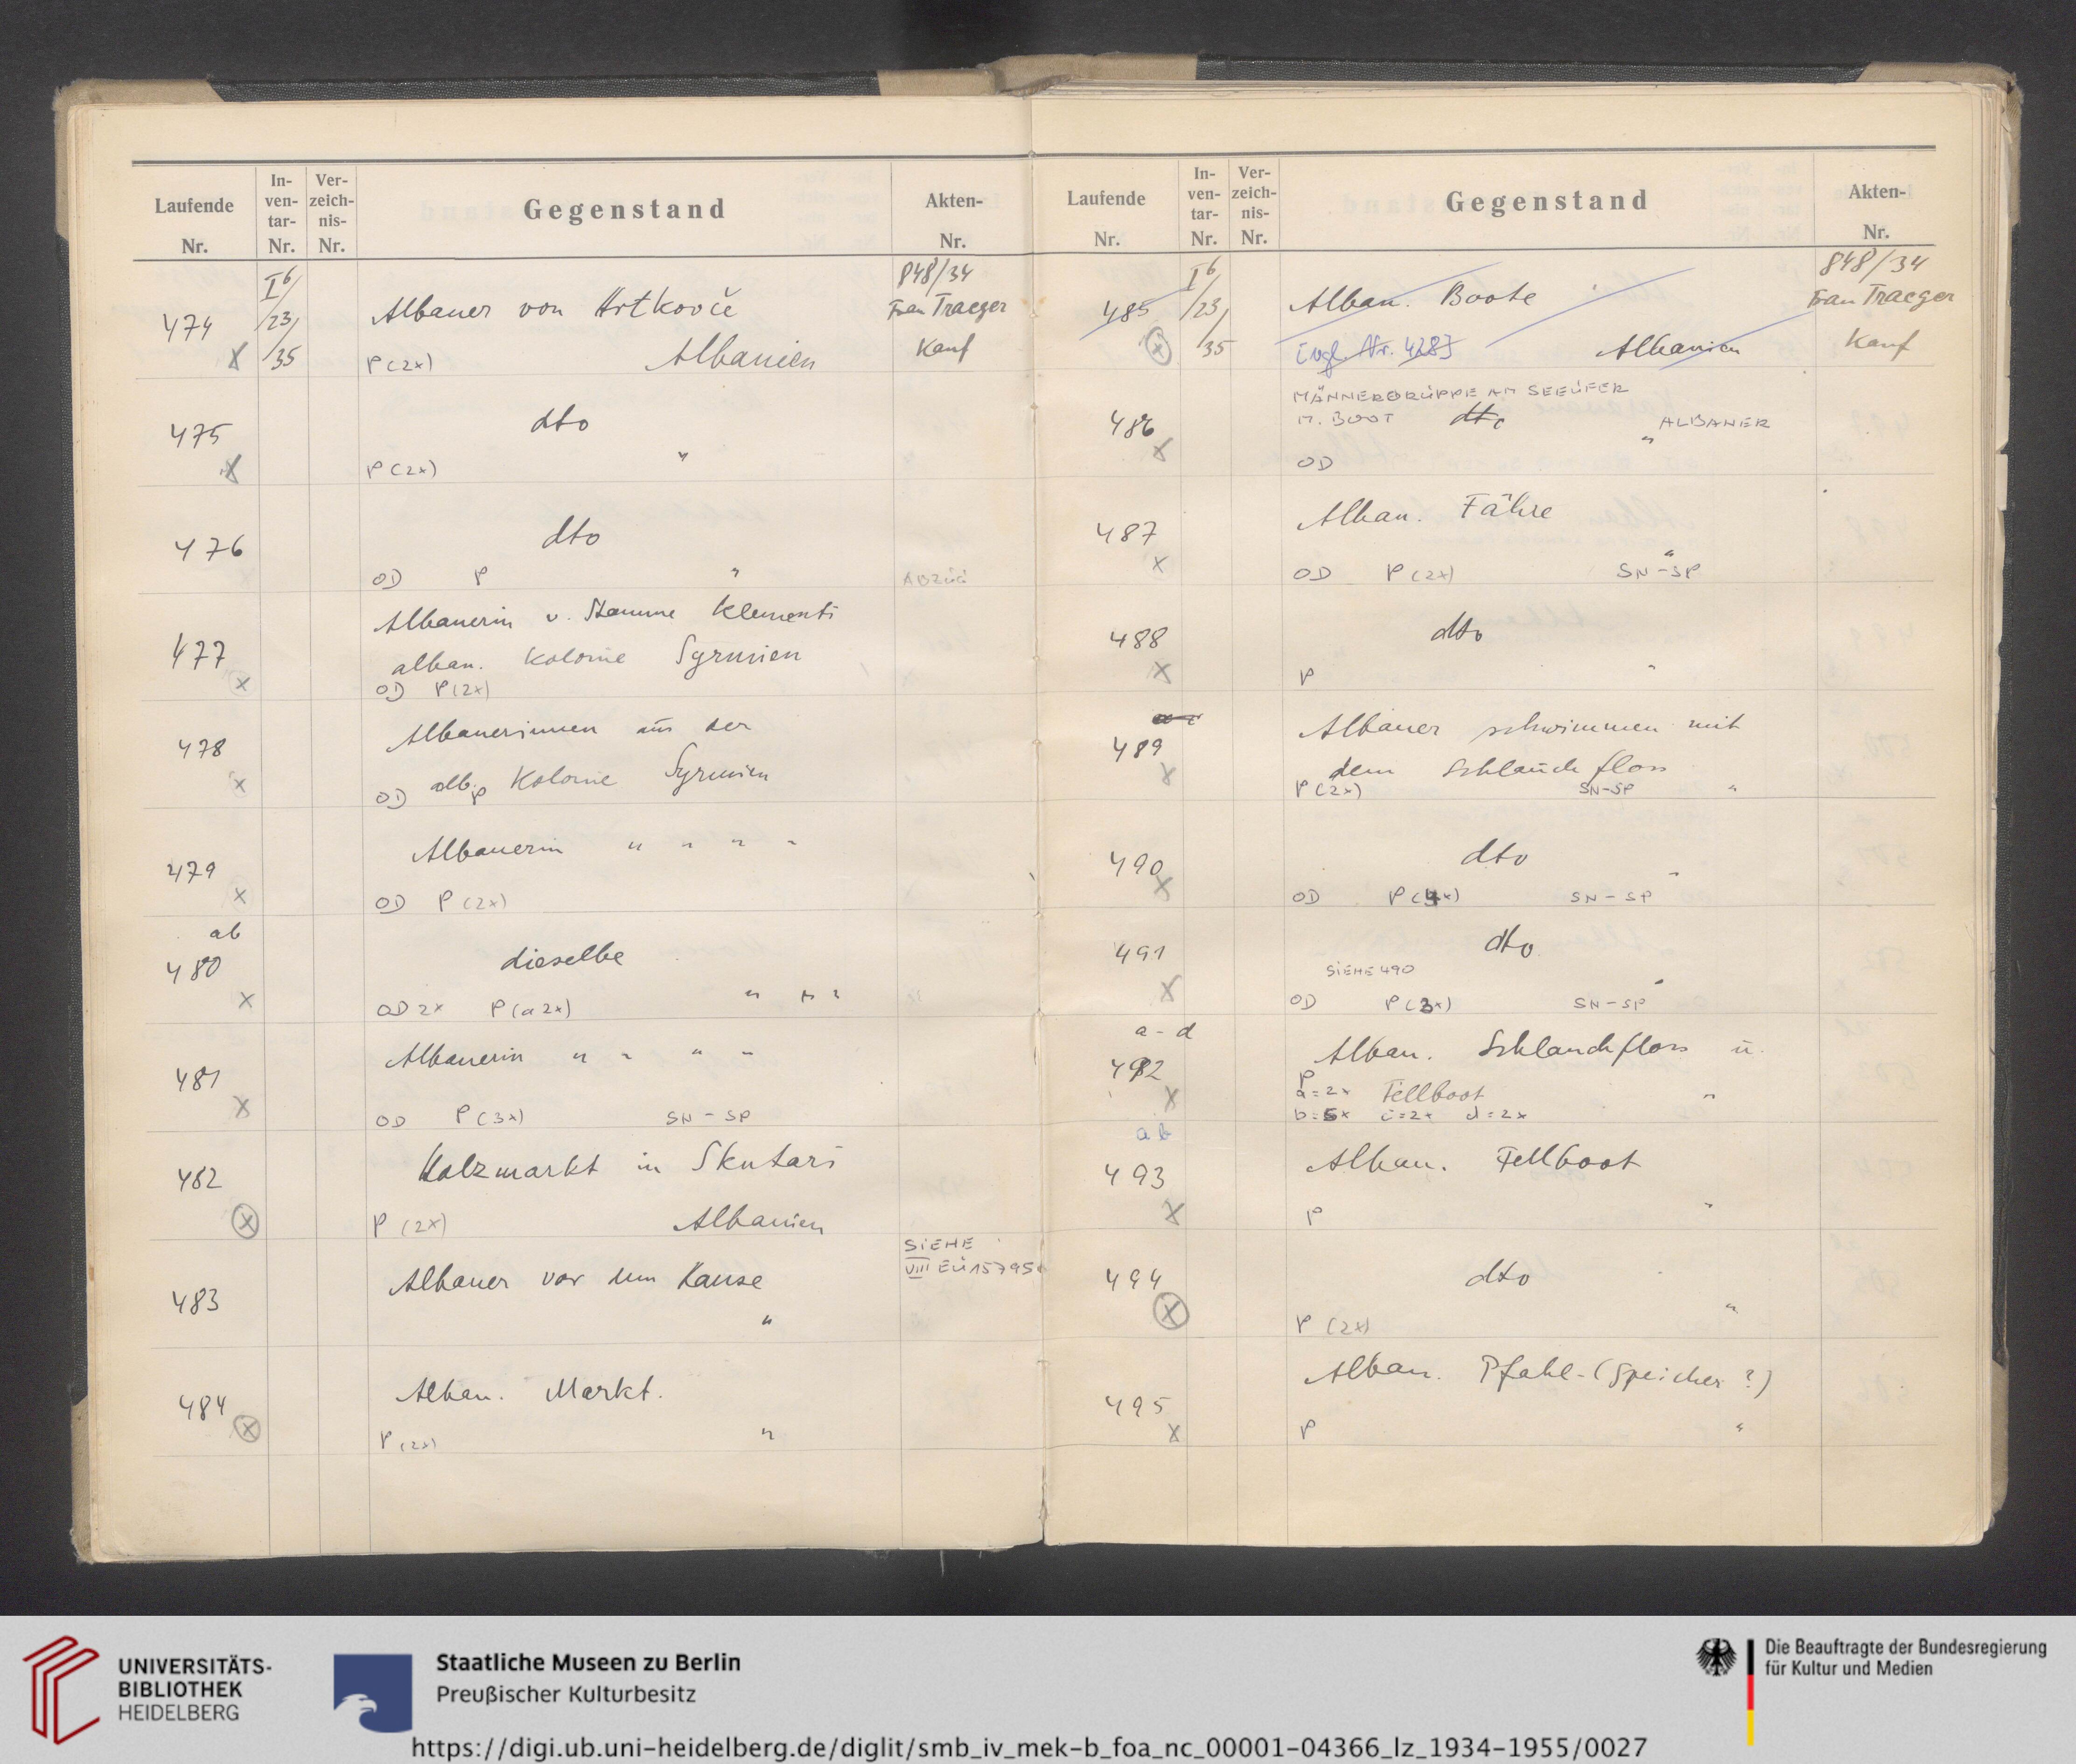 Laufende Nr. In-ven-tar-Nr. Ver-zeich-nis-Nr. Gegenstand Akten-Nr.
I6/23/35
848/34
Frau Traeger
Kauf
474 x Albaner von Hrtkovče
P(2x) Albanien
475 x dto
P(2x) "
476 dto
OD P " ABZUG
477 x Albanerin v. Stamme Klementi
alban. Kolonie Syrmien
OD P(2x)
478 x Albanerinnen aus der
alb. Kolonie Syrmien
OD P
479 x Albanerin " " " "
OD P(2x)
ab
480 x dieselbe
OD 2x P(a 2x) " " "
481 x Albanerin " " " "
OD P(3x) SN-SP
482 x Holzmarkt in Skutari
P (2x) Albanien
SIEHE
483 Albaner vor dem Hause
"
484 x Alban. Markt.
P (2x) "
Laufende Nr. In-ven-tar-Nr. Ver-zeich-nis-Nr. Gegenstand Akten-Nr.
I6/23/35
848/34
Frau Traeger
Kauf
485 x Alban. Boote
[vgl. Nr. 428] Albanien
MÄNNERGRUPPE AM SEEUFER
486 x M. BOOT dto ALBANER
"
OD
487 x Alban. Fähre
"
OD P (2x) SN-SP
488 x dto
P "
489 x Albaner schwimmen mit
dem Schlauchfloss
P(2x) SN-SP "
490 x dto
"
OD P(4x) SN-SP
491 x dto
SIEHE 490
"
OD P(3x) SN-SP
a-d
492 x Alban. Schlauchfloss u.
P
a=2x Fellboot "
b=5x c=2x d=2x
ab
493 x Alban. Fellboot
P "
494 x dto
"
P (2x)
495 x Alban. Pfahl-(Speicher?)
P "
UNIVERSITÄTS-
BIBLIOTHEK
HEIDELBERG
Staatliche Museen zu Berlin
Preußischer Kulturbesitz
Die Beauftragte der Bundesregierung
für Kultur und Medien
https://digi.ub.uni-heidelberg.de/diglit/smb_iv_mek-b_foa_nc_00001-04366_lz_1934-1955/0027